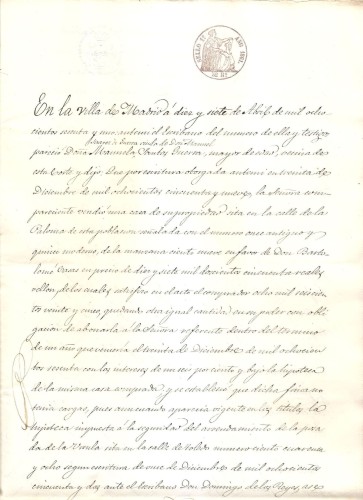 En la Villa de Madrid á diez y siete de Abril de mil ocho
cientos sesenta y uno, ante mi el Escribano del numero de ella y testigos
viuda de Don Manuel
pareció Doña Manuela Santos mayor de edad, vecina de
esta Corte y dijo: Que por escritura otorgada ante mi en treinta de
Diciembre de mil ochocientos cincuenta y nueve, la Señora com
pareciente vendió una casa de su propiedad sita en la calle de la
Paloma de esta poblacion señalada con el numero once antiguo y
quince moderno, de la manzana ciento nueve en favor de Don Barto
lomé en precio de diez y siete mil doscientos cincuenta reales
vellon, de los cuales satisfizo en el acto el comprador ocho mil seiscien
tos veinte y cinco, quedando otra igual cantidad en su poder con obli
gacion de abonarla á la Señora referente dentro del termino
de un año que venceria el treinta de Diciembre de mil ochocien
tos sesenta con los intereses de un seis por ciento y bajo la hipoteca
de la misma casa comprada, y se estableció que dicha finca no
tenia cargas, pues aun cuando aparecia vigente en los titulos la
hipoteca impuesta á la seguridad del arrendamiento de la posa
da de la sita en la calle de Toledo numero ciento cuarenta
y ocho segun escritura de once de Diciembre de mil ochocientos
cincuenta y dos ante el Escribano Don Domingo de los Reyes,